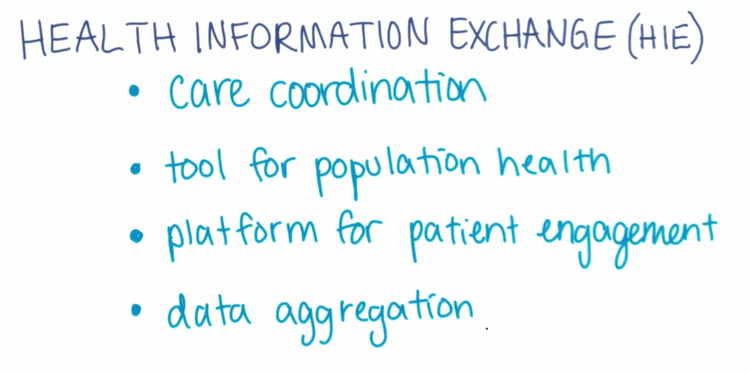 HEALTH INFORMATION EXCHANGE (HIE)
• care coordination
• tool for population health
• platform for patient engagement
• data aggregation